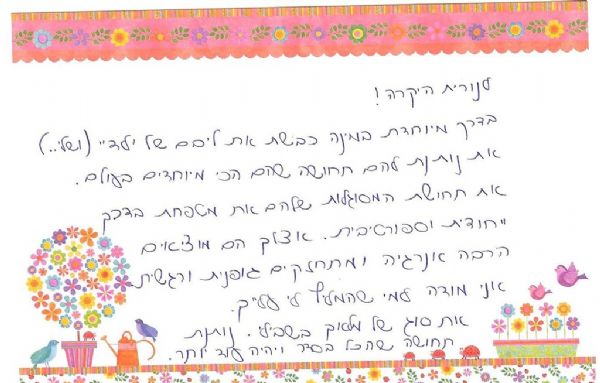 לנורית היקרה!
בדרך מיוחדת במינה כבשת את ליבם של ילדיי (ושלי..)
את נותנת להם תחושה שהם הכי מיוחדים בעולם.
את תחושת המסוגלות שלהם את מטפחת בדרך
ייחודית וספורטיבית. אצלך הם מוציאים
הרבה אנרגיה ומתחזקים גופנית ורגשית
אני מודה למי שהמליץ לי עלייך.
את סוג של מלאך בשבילי. נותנת
תחושה שהכל בסדר ויהיה עוד יותר.